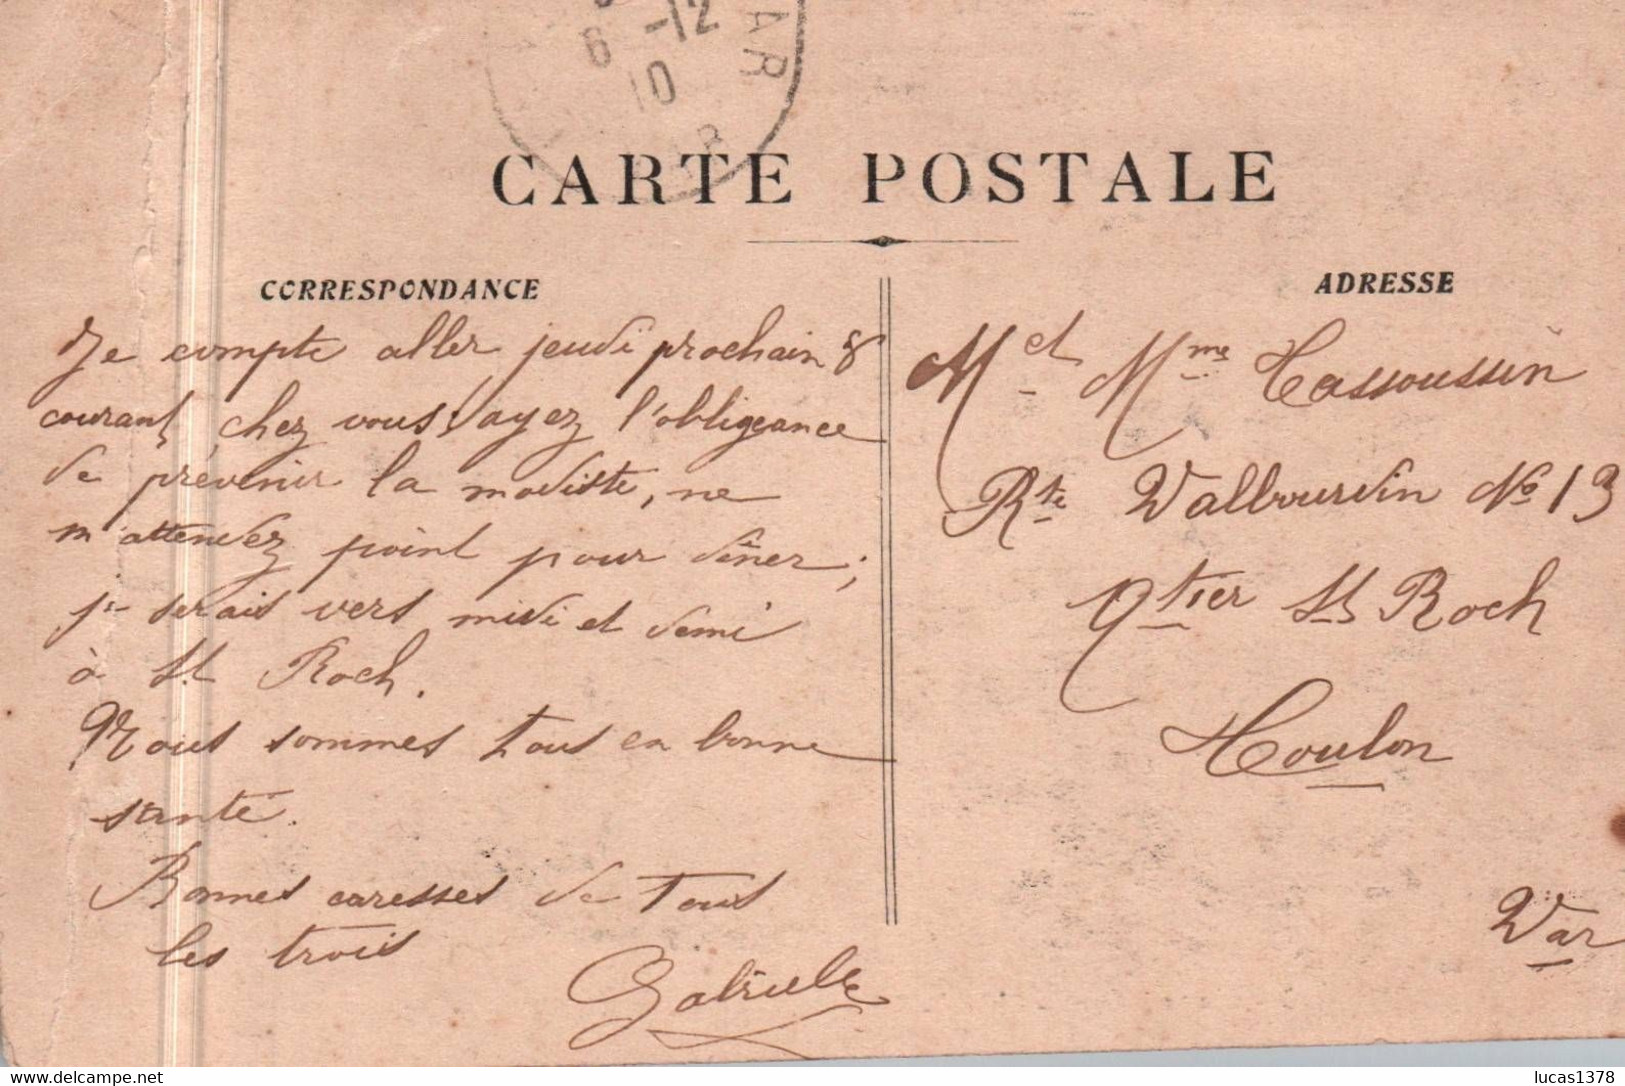 6 -12
10
AR
CARTE POSTALE
CORRESPONDANCE
Je compte aller jeudi prochain 8
courant chez vous, ayez l'obligeance
de prévenir la modiste, ne
m'attendez point pour dîner;
je serais vers midi et demi
à St Roch.
Nous sommes tous en bonne
santé.
Bonnes caresses de tous
les trois
Gabrielle
ADRESSE
M et Mme Cassoussin
Rte Valbourdin No 13
Qtier St Roch
Toulon
Var
lucas1378